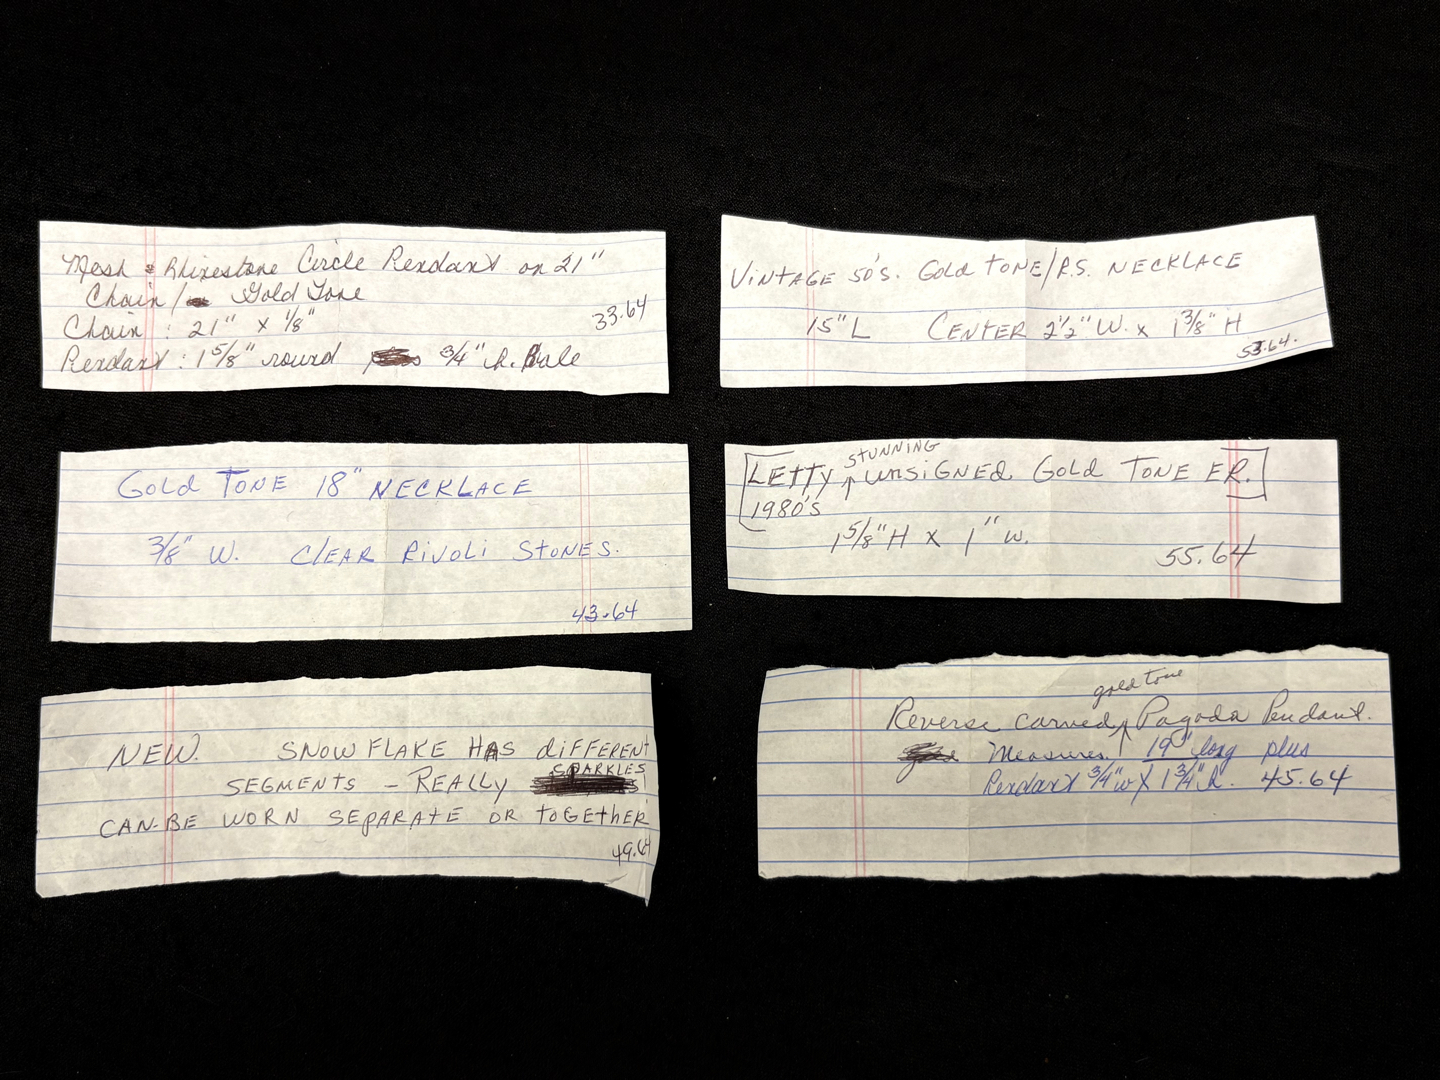 Mesh & Rhinestone Circle Pendant on 21"
Chain/ Gold Tone
Chain: 21" x 1/8"
33.64
Pendant: 1 5/8" round 3/4" h. Bale
VINTAGE 50'S. GOLD TONE/R.S. NECKLACE
15" L CENTER 2 1/2" W. x 1 3/8" H
53.64.
GOLD TONE 18" NECKLACE
3/8" W. CLEAR RIVOLI STONES.
43.64
STUNNING
[LETTY UNSIGNED. GOLD TONE ER.]
1980'S
1 5/8" H x 1" W.
55.64
NEW. SNOWFLAKE HAS DIFFERENT
SPARKLES
SEGMENTS - REALLY
CAN-BE WORN SEPARATE OR TOGETHER
49.64
gold tone
Reverse carved Pagoda Pendant.
Measures 19" long plus
Pendant 3/4" w x 1 3/4" h. 45.64